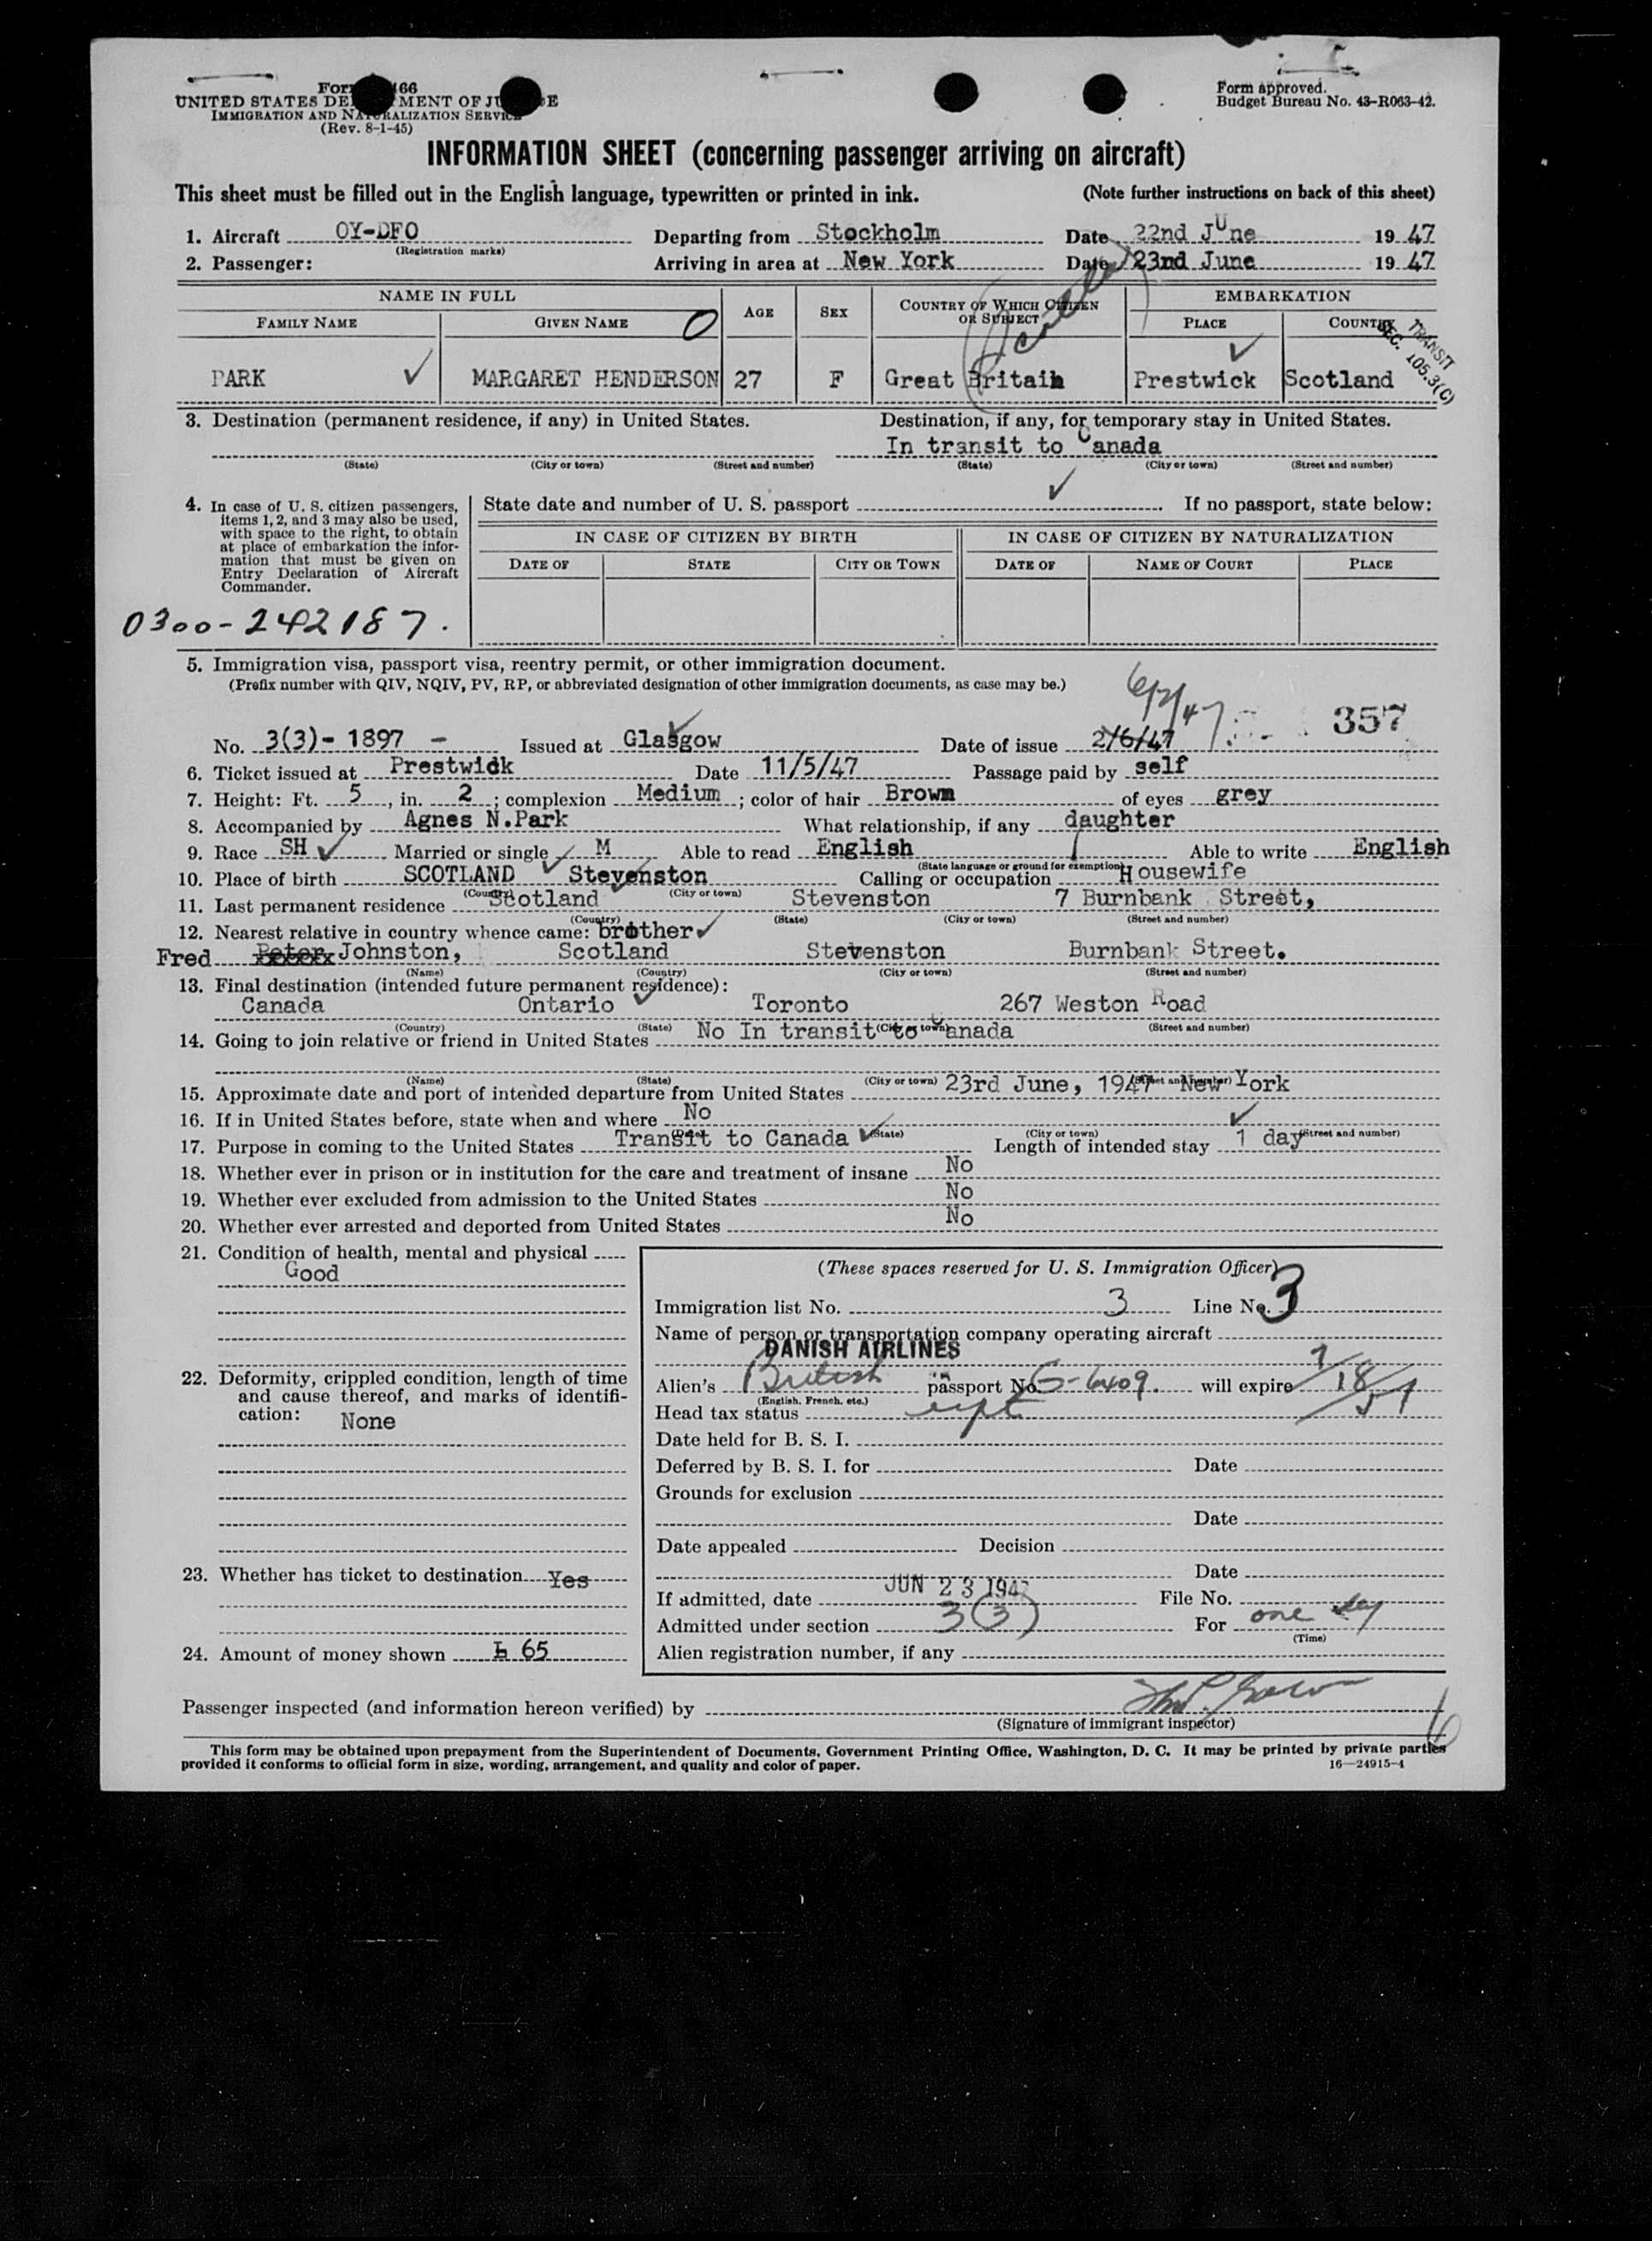 Form 466
UNITED STATES DEPARTMENT OF JUSTICE
IMMIGRATION AND NATURALIZATION SERVICE
(Rev. 8-1-45)
Form approved.
Budget Bureau No. 43-R063-42.
INFORMATION SHEET (concerning passenger arriving on aircraft)
This sheet must be filled out in the English language, typewritten or printed in ink. (Note further instructions on back of this sheet)
1. Aircraft OY-DFO Departing from Stockholm Date 22nd JUne 19 47
(Registration marks)
2. Passenger: Arriving in area at New York Date 23nd June 19 47
NAME IN FULL AGE SEX COUNTRY OF WHICH CITIZEN OR SUBJECT EMBARKATION
FAMILY NAME GIVEN NAME PLACE COUNTRY
TRANSIT
SEC. 105.3(C)
PARK MARGARET HENDERSON 27 F Great Britain Prestwick Scotland
3. Destination (permanent residence, if any) in United States. Destination, if any, for temporary stay in United States.
In transit to Canada
(State) (City or town) (Street and number) (State) (City or town) (Street and number)
4. In case of U. S. citizen passengers, items 1, 2, and 3 may also be used, with space to the right, to obtain at place of embarkation the information that must be given on Entry Declaration of Aircraft Commander.
State date and number of U. S. passport If no passport, state below:
IN CASE OF CITIZEN BY BIRTH IN CASE OF CITIZEN BY NATURALIZATION
DATE OF STATE CITY OR TOWN DATE OF NAME OF COURT PLACE
0300-242187.
5. Immigration visa, passport visa, reentry permit, or other immigration document.
(Prefix number with QIV, NQIV, PV, RP, or abbreviated designation of other immigration documents, as case may be.)
6/2/47 357
No. 3(3)- 1897 - Issued at Glasgow Date of issue 2/6/47
6. Ticket issued at Prestwick Date 11/5/47 Passage paid by self
7. Height: Ft. 5, in. 2; complexion Medium; color of hair Brown of eyes grey
8. Accompanied by Agnes N.Park What relationship, if any daughter
9. Race SH Married or single M Able to read English Able to write English
(State language or ground for exemption)
10. Place of birth SCOTLAND Stevenston Calling or occupation Housewife
(Country) (City or town)
11. Last permanent residence Scotland Stevenston 7 Burnbank Street,
(Country) (State) (City or town) (Street and number)
12. Nearest relative in country whence came: brother
Fred Peter Johnston, Scotland Stevenston Burnbank Street.
(Name) (Country) (City or town) (Street and number)
13. Final destination (intended future permanent residence):
Canada Ontario Toronto 267 Weston Road
(Country) (State) (City or town) (Street and number)
14. Going to join relative or friend in United States No In transit to Canada
(Name) (State) (City or town) (Street and number)
15. Approximate date and port of intended departure from United States 23rd June, 1947 New York
16. If in United States before, state when and where No
(Date) (State) (City or town) (Street and number)
17. Purpose in coming to the United States Transit to Canada Length of intended stay 1 day
18. Whether ever in prison or in institution for the care and treatment of insane No
19. Whether ever excluded from admission to the United States No
20. Whether ever arrested and deported from United States No
21. Condition of health, mental and physical
Good
22. Deformity, crippled condition, length of time and cause thereof, and marks of identification:
None
23. Whether has ticket to destination Yes
24. Amount of money shown £ 65
(These spaces reserved for U. S. Immigration Officer)
Immigration list No. 3 Line No. 3
Name of person or transportation company operating aircraft
DANISH AIRLINES
Alien's British passport No. G-6409. will expire 7/18/51
(English, French, etc.)
Head tax status
Date held for B. S. I.
Deferred by B. S. I. for Date
Grounds for exclusion
Date
Date appealed Decision
Date
If admitted, date JUN 23 1947 File No.
Admitted under section 3(3) For one day
(Time)
Alien registration number, if any
Passenger inspected (and information hereon verified) by
(Signature of immigrant inspector)
This form may be obtained upon prepayment from the Superintendent of Documents, Government Printing Office, Washington, D. C. It may be printed by private parties
provided it conforms to official form in size, wording, arrangement, and quality and color of paper. 16—24915-4